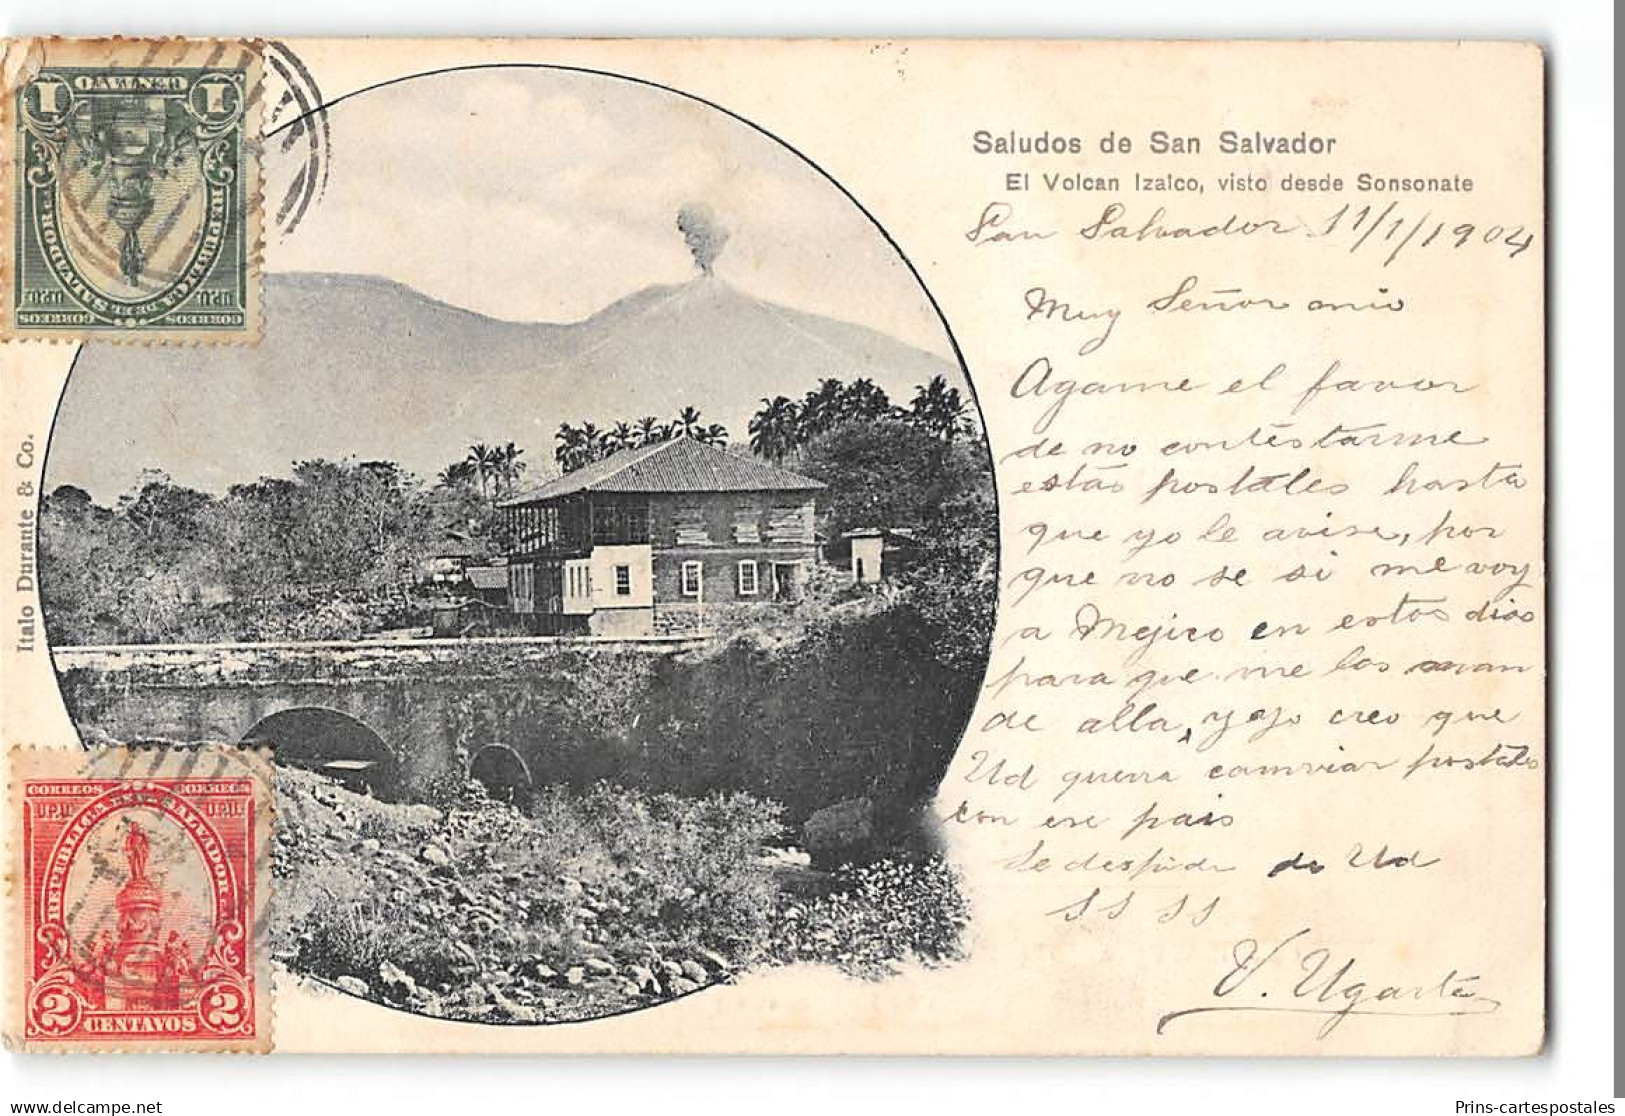 UN CENTAVO
1 1
REPUBLICA DE EL SALVADOR
U.P.U. U.P.U.
CORREOS CORREOS
Italo Durante & Co.
CORREOS CORREOS
U.P.U. U.P.U.
REPUBLICA DE EL SALVADOR
2 2
CENTAVOS
Saludos de San Salvador
El Volcan Izalco, visto desde Sonsonate
San Salvador 11/1/1904
Muy Señor mio
Agame el favor
de no contéstarme
estás postales hasta
que yo le avise, por
que no se si me voy
a Mejico en estos dias
para que me las man
de alla, y yo creo que
Ud querra camviar postales
con ese pais
Se despide de Ud
SS SS
V. Ugarte
Prins-cartespostales